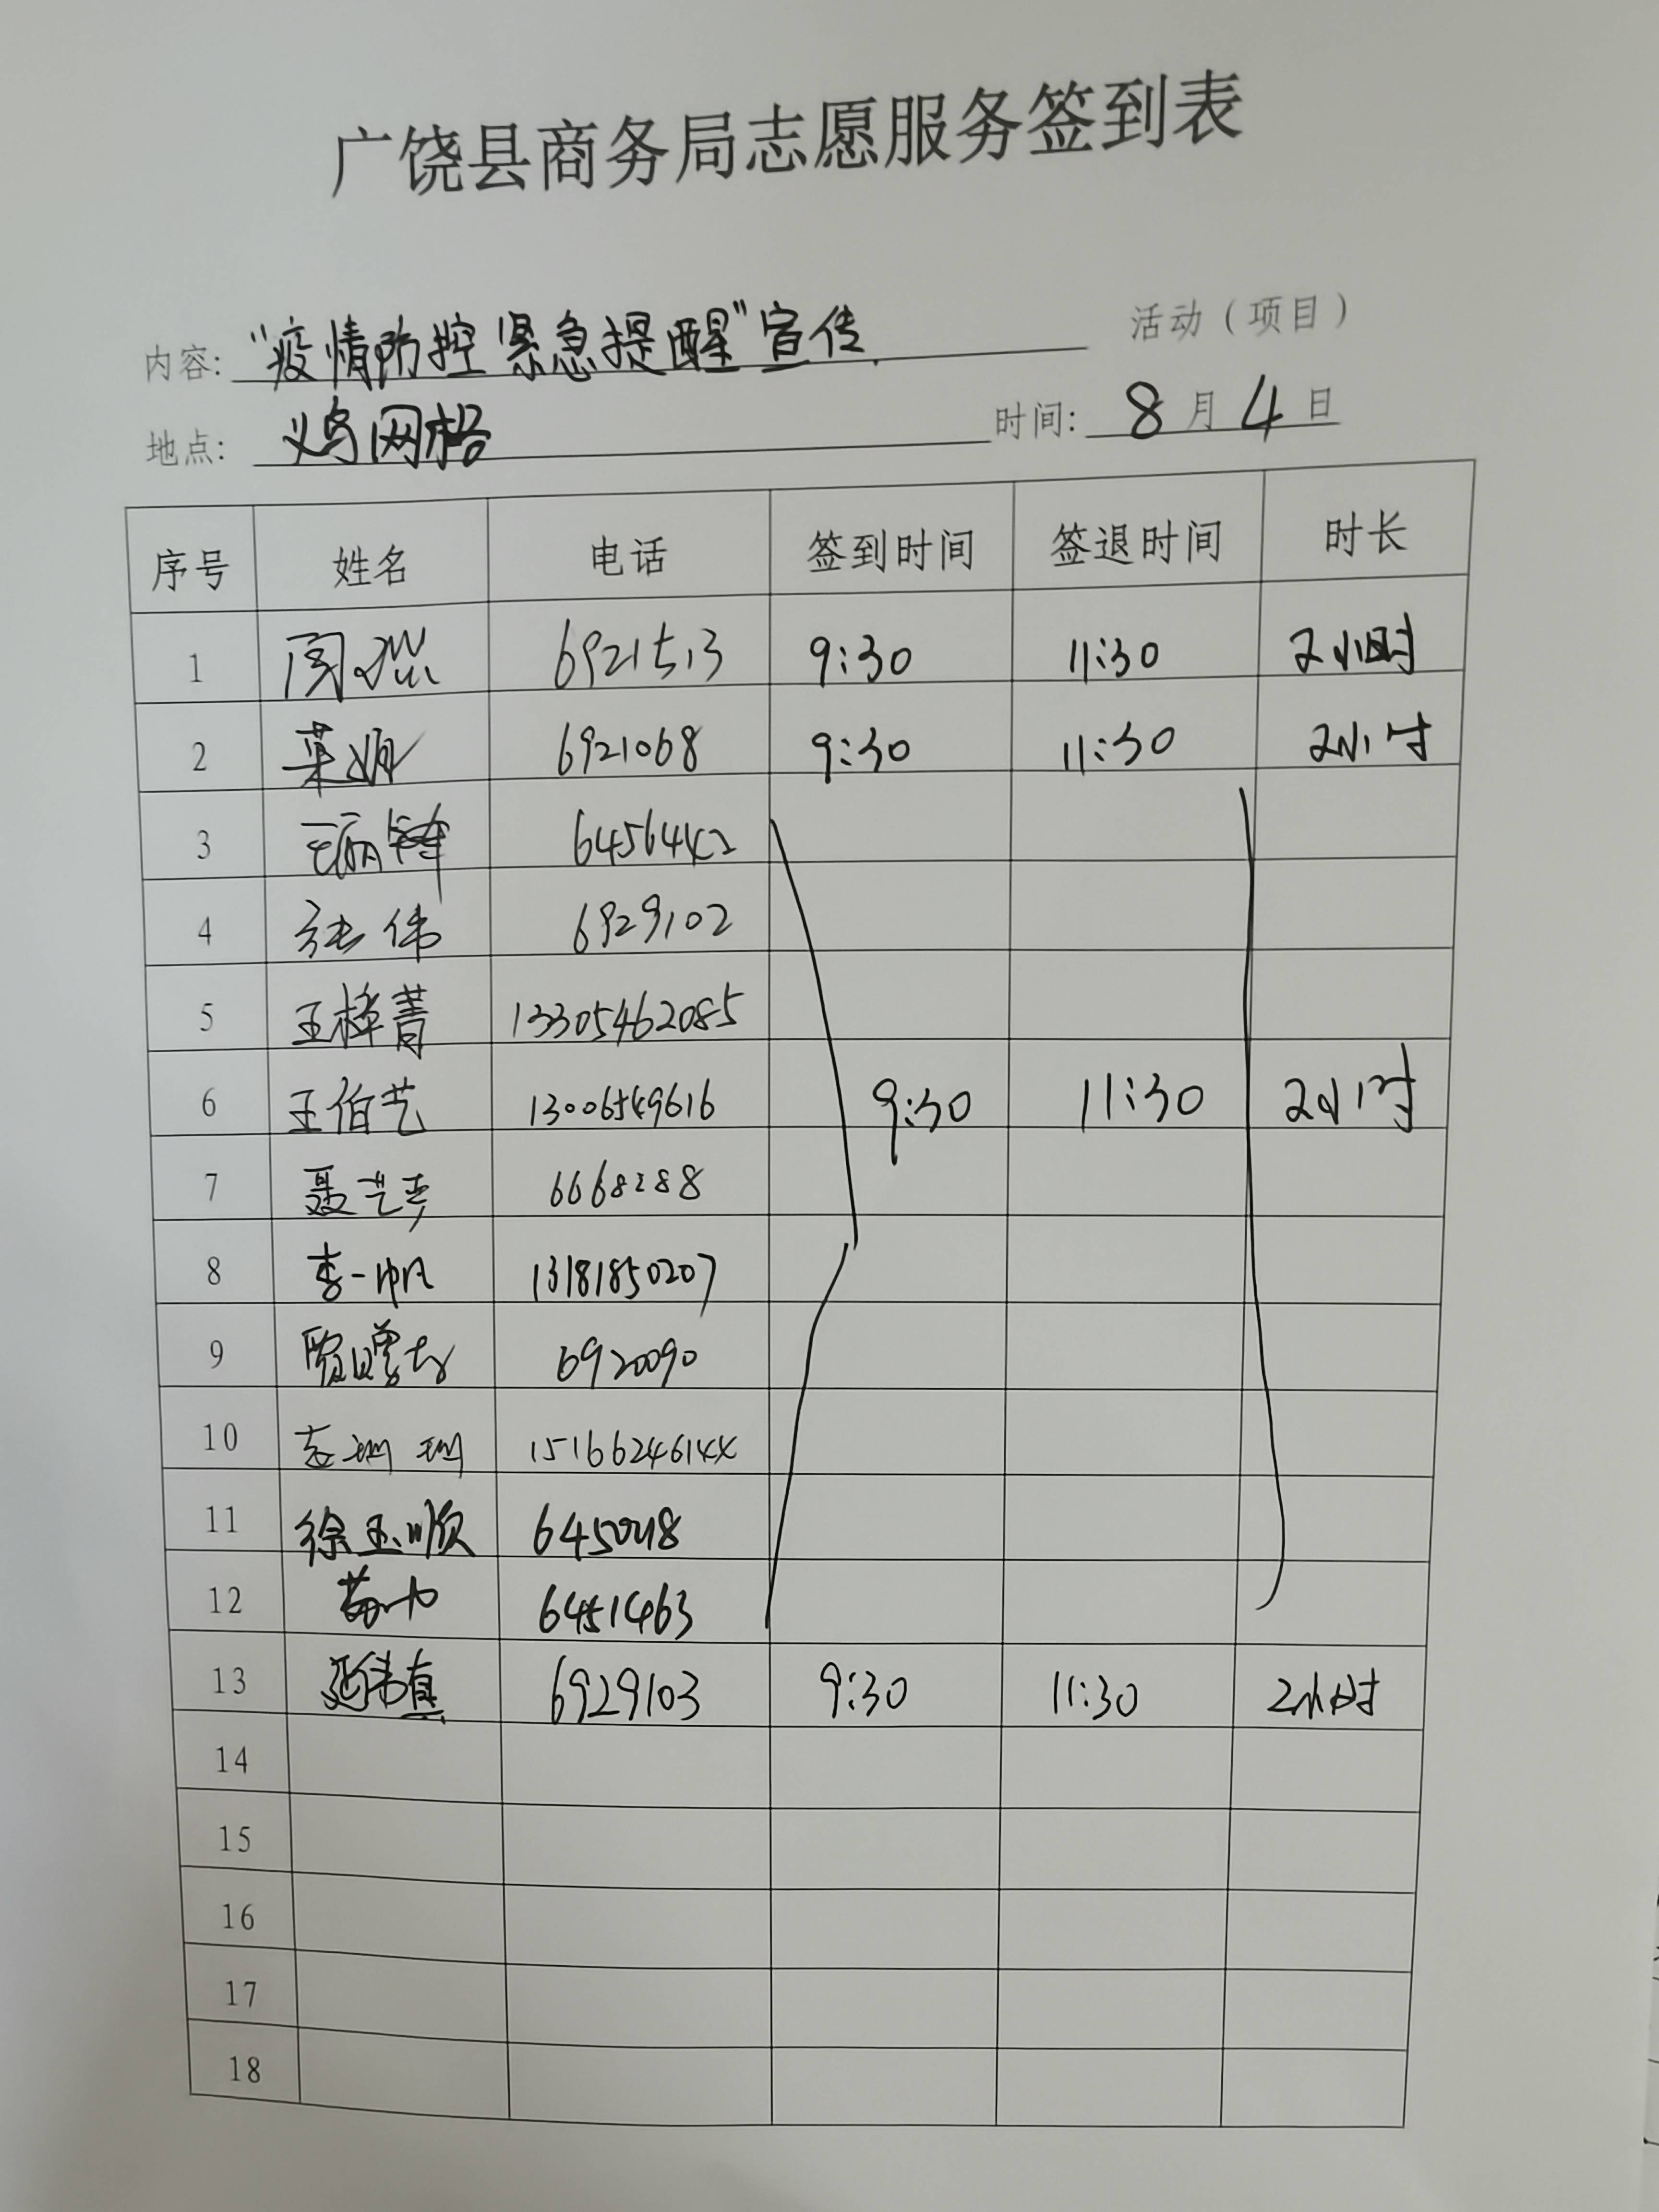 广饶县商务局志愿服务签到表
内容: “疫情防控紧急提醒”宣传 活动（项目）
地点: 义乌网格 时间: 8月4日
序号 姓名 电话 签到时间 签退时间 时长
1 6921513 9:30 11:30 2小时
2 6921068 9:30 11:30 2小时
3 王丽锋
4 张伟 6929102
5 王梓菁 13305462085
6 王伯艺 13006549616 9:30 11:30 2小时
7 聂艺 6668288
8 李一帆 13181850207
9 6920090
10 珊珊
11 徐玉顺
12 6451463
13 延伟真 6929103 9:30 11:30 2小时
14
15
16
17
18